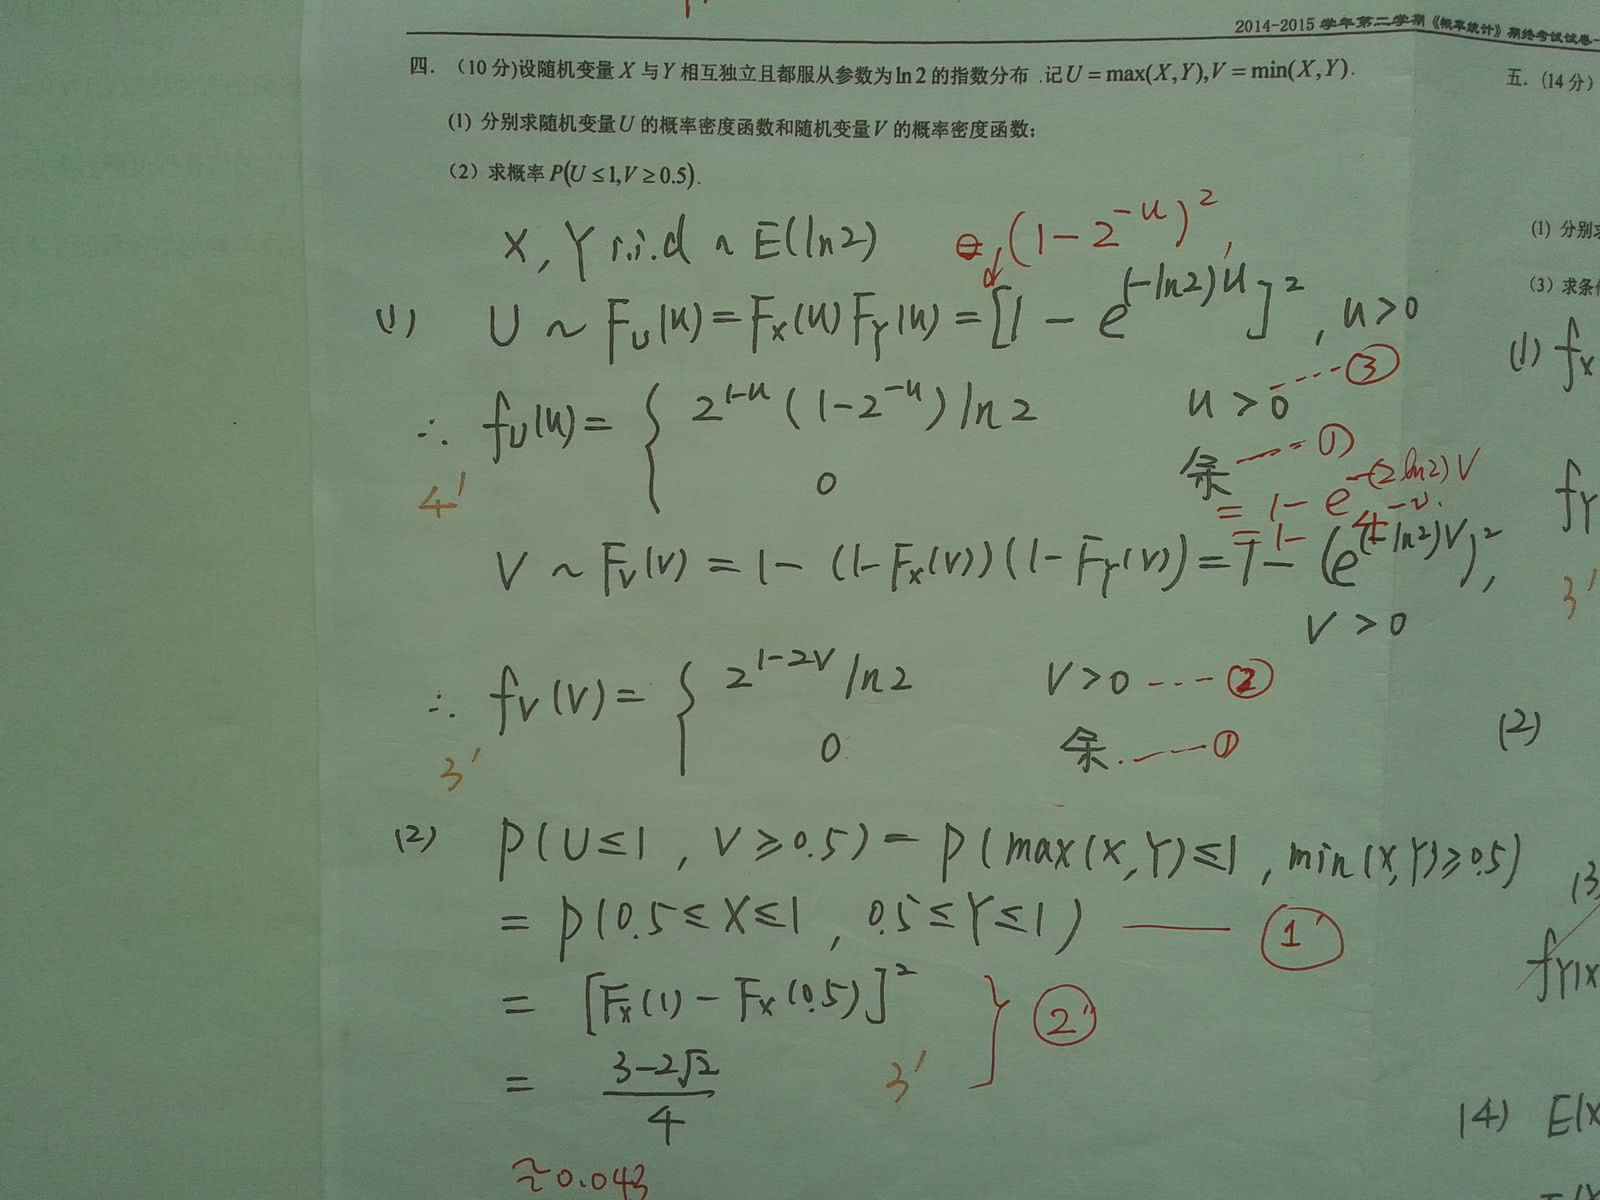 2014-2015 学年第二学期《概率统计》期终考试试卷-
四. (10 分)设随机变量 X 与 Y 相互独立且都服从参数为 ln 2 的指数分布 .记 U = max(X,Y), V = min(X,Y).
(1) 分别求随机变量 U 的概率密度函数和随机变量 V 的概率密度函数;
(2) 求概率 P(U ≤ 1, V ≥ 0.5).
X, Y i.i.d ~ E(ln2)
(1 - 2^{-u})^2,
(1) U ~ F_U(u) = F_X(u) F_Y(u) = [1 - e^{(-ln2)u}]^2, u>0
③
∴ f_U(u) = { 2^{1-u} (1-2^{-u}) ln2 u>0
0 余 ①
4'
= 1 - e^{-(2ln2)V}
= 1 - 4^{-v}.
V ~ F_V(v) = 1 - (1-F_X(v))(1-F_Y(v)) = 1 - (e^{(-ln2)V})^2,
V>0
∴ f_V(V) = { 2^{1-2V} ln2 V>0 ②
0 余. ①
3'
(2) P(U≤1, V≥0.5) = P(max(X,Y)≤1, min(X,Y)≥0.5)
= P(0.5≤X≤1, 0.5≤Y≤1) 1'
= [F_X(1) - F_X(0.5)]^2
2'
= \frac{3-2√2}{4} 3'
≈0.043
五. (14 分)
(1) 分别
(3) 求条
(1) f_X
f_Y
3'
(2)
(3
f_{Y|X
(4) E(X